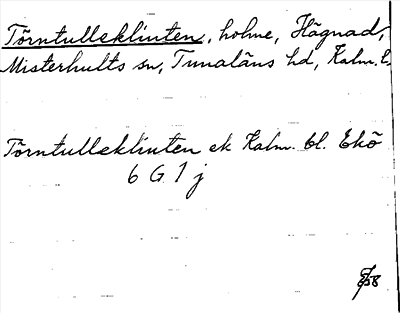 Törntulleklinten, holme, Hägnad,
Misterhults sn, Tunaläns hd, Kalm. l.
Törntulleklinten ek Kalm. bl. Ekö
6 G 1 j
58